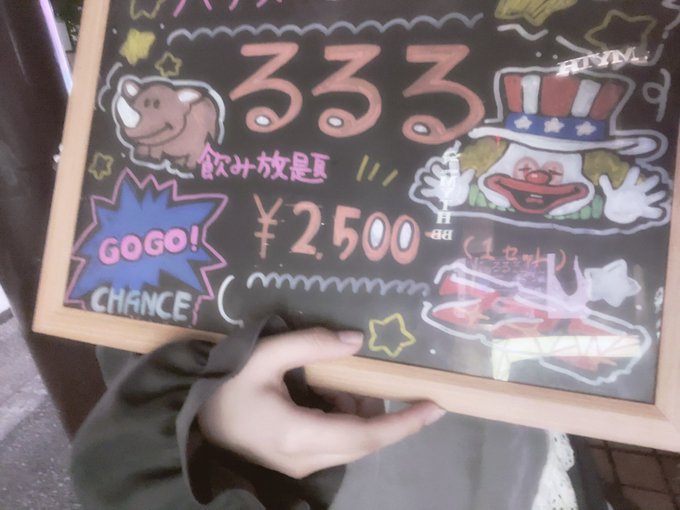 るるる
飲み放題
¥2,500
(1セット)
GOGO!
CHANCE